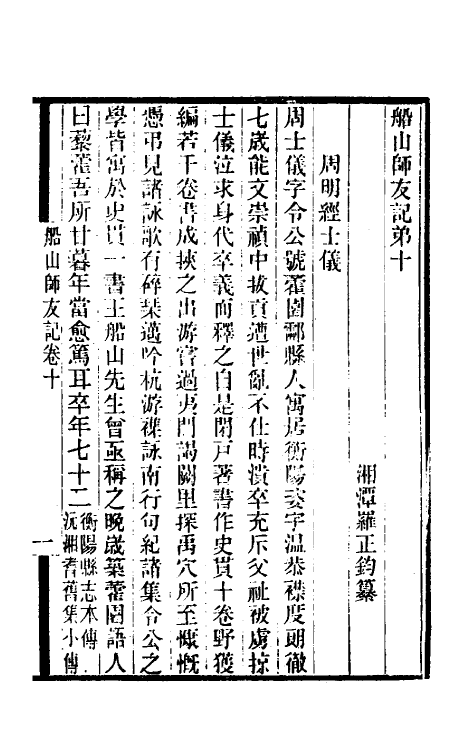 船山師友記弟十
湘潭羅正鈞纂
周明經士儀
周士儀字令公號藿園酃縣人寓居衡陽姿字温恭襟度朗徹
七歲能文崇禎中拔貢遭世亂不仕時潰卒充斥父祉被虜掠
士儀泣求身代卒義而釋之自是閉戸著書作史貫十卷野獲
編若干卷書成挾之出游嘗過夷門謁闕里探禹穴所至慷慨
憑弔見諸詠歌有碎琹邁吟杭游襍詠南行句紀諸集令公之
學皆寓於史貫一書王船山先生曾亟稱之晚歲築藿園語人
曰藜藿吾所甘暮年當愈篤耳卒年七十二
衡陽縣志本傳
沅湘耆舊集小傳
船山師友記卷十
一